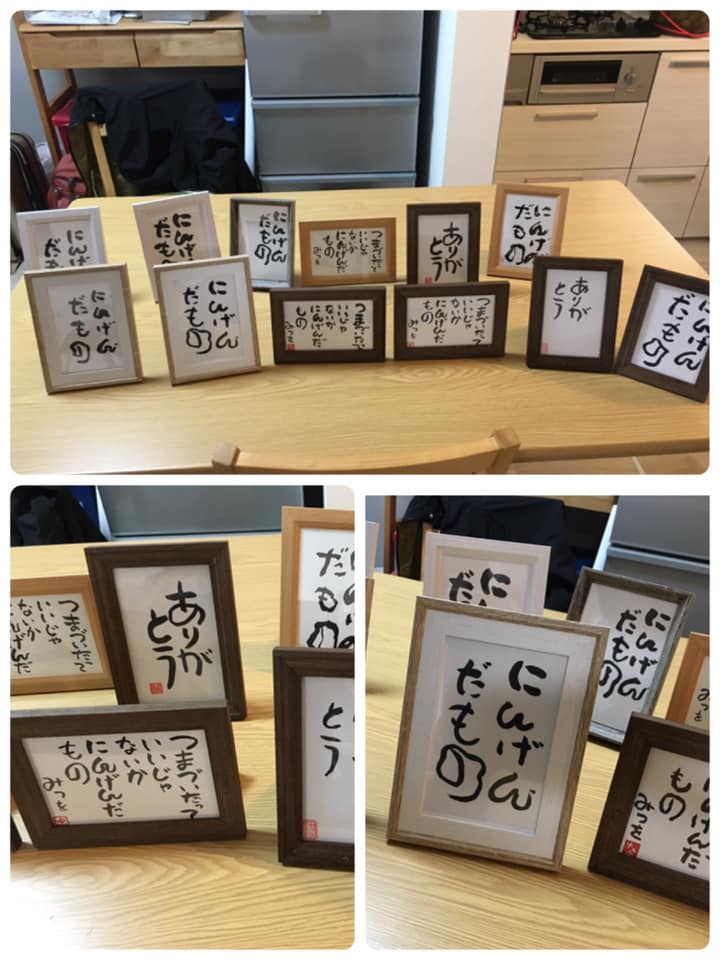 にんげ
だも
にんげ
だも
にんげん
だもの
つまづいたって
いいじゃ
ないか
にんげんだ
もの
みつを
ありが
とう
にんげん
だもの
にんげん
だもの
にんげん
だもの
つまづいたって
いいじゃ
ないか
にんげんだ
もの
みつを
つまづいたって
いいじゃ
ないか
にんげんだ
もの
みつを
ありが
とう
にんげん
だもの
つまづいたって
いいじゃ
ないか
にんげんだ
ありが
とう
だもの
つまづいたって
いいじゃ
ないか
にんげんだ
もの
みつを
とう
に
だ
にんげん
だもの
にんげん
だもの
みつ
んだ
もの
みつを